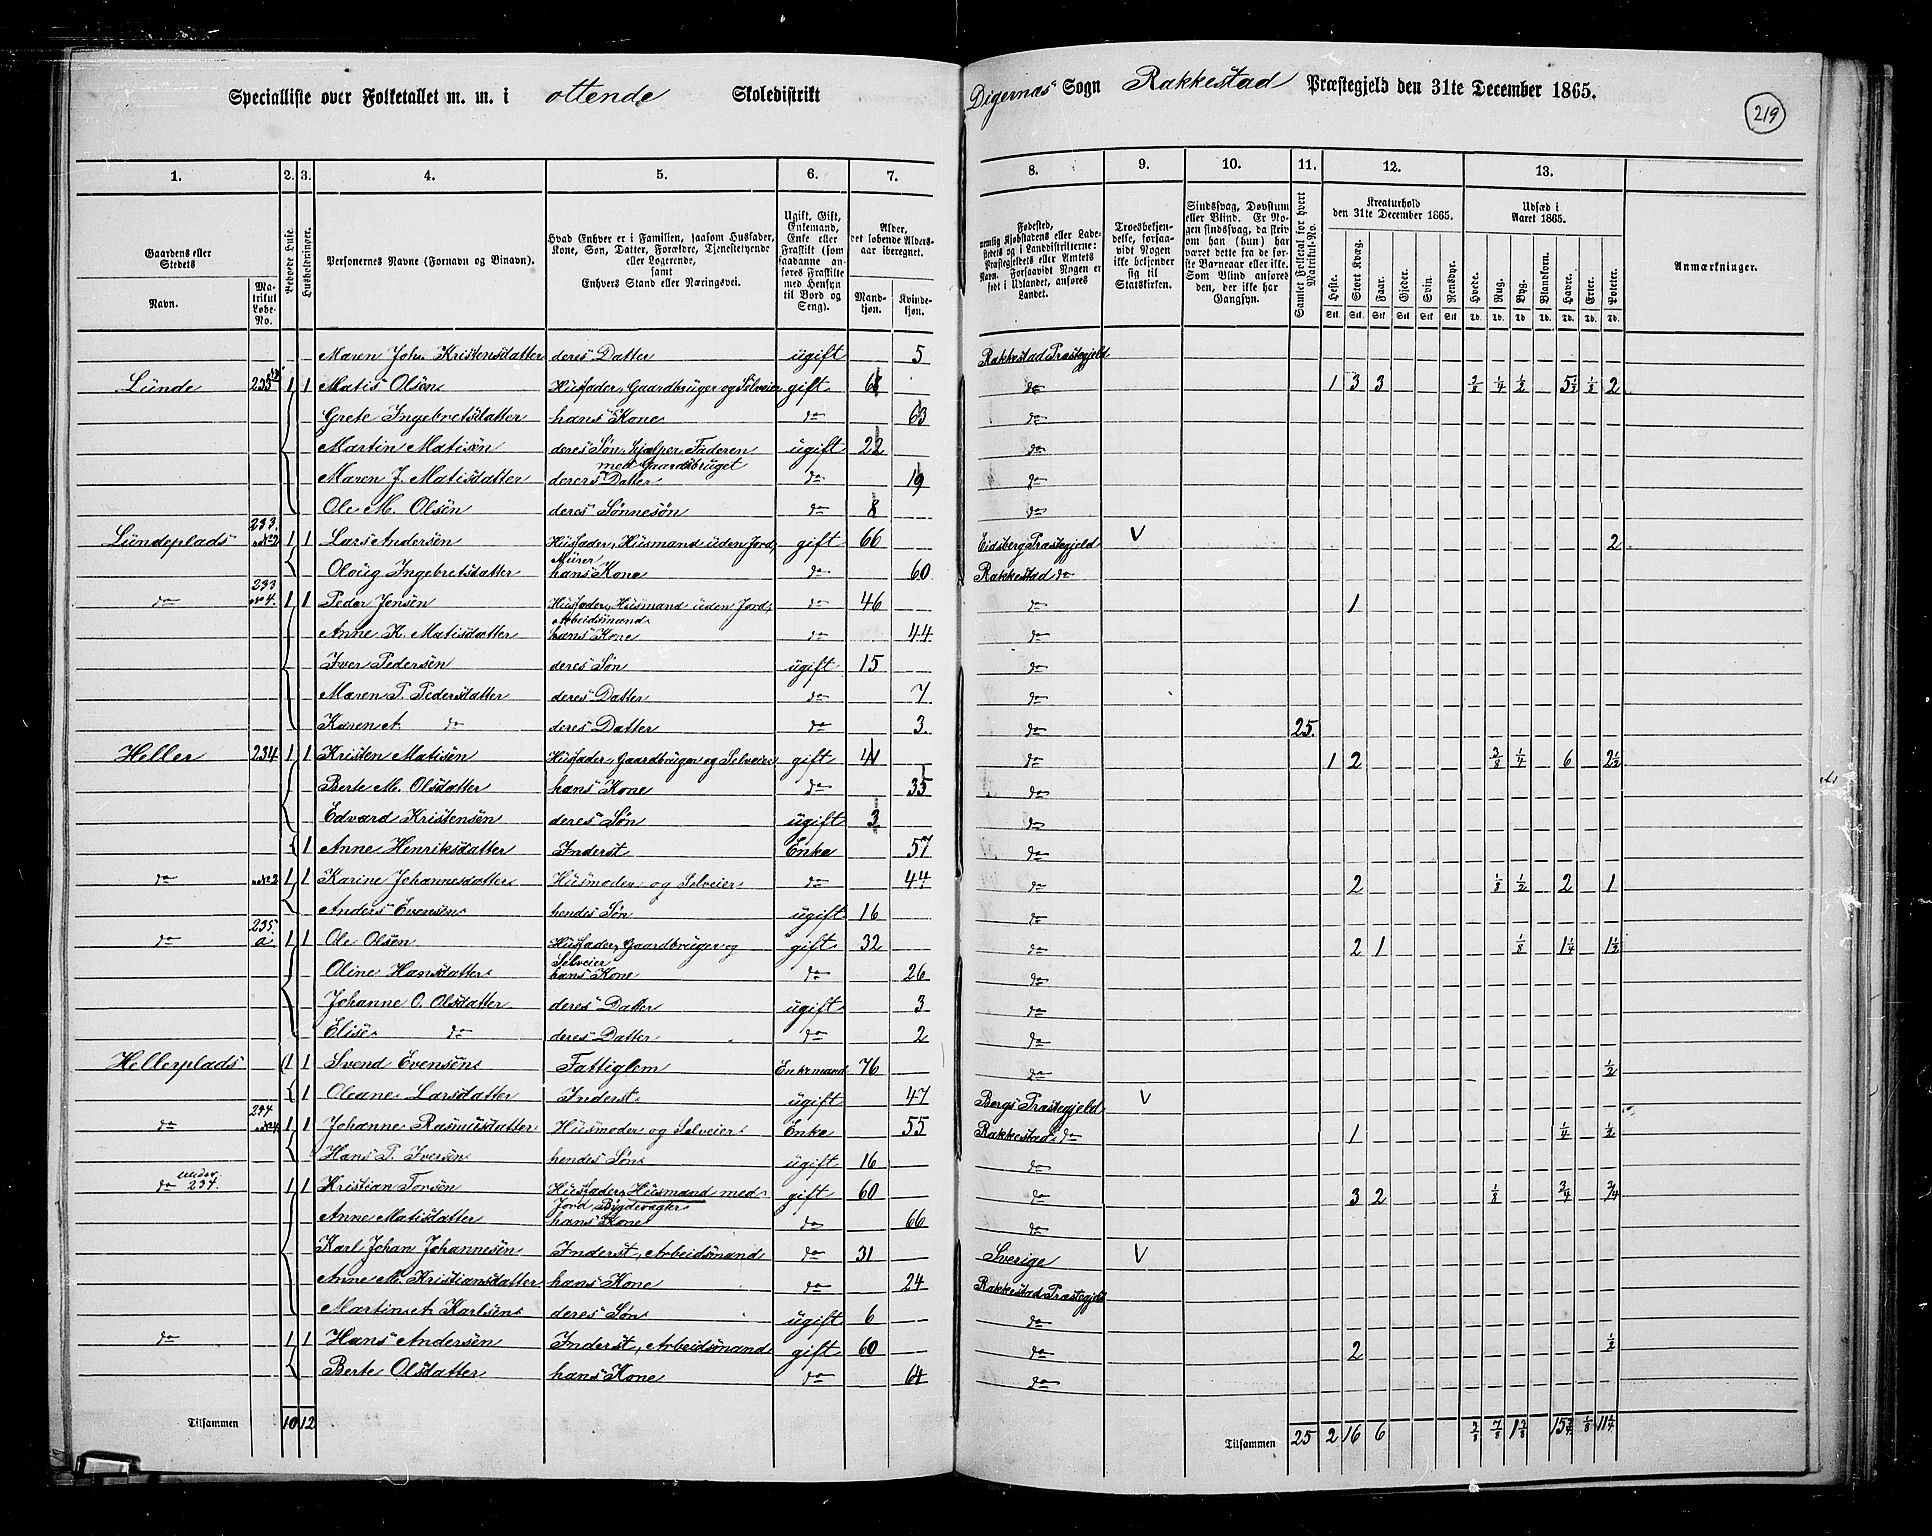 Specialliste over Folketallet m. m. i ottende Skoledistrikt Digernæs Sogn Rakkestad Præstegjeld den 31te December 1865.
219
1. 2. 3. 4. 5. 6. 7. 8. 9. 10. 11. 12. 13.
Gaardens eller Stedets
Navn.
Matrikul Løbe-No.
Beboede Huse.
Husholdninger.
Personernes Navne (Fornavn og Binavn).
Hvad Enhver er i Familien, saasom Husfader, Kone, Søn, Datter, Forældre, Tjenestetyende eller Logerende, samt Enhvers Stand eller Næringsvei.
Ugift, Gift, Enkemand, Enke eller Fraskilt (som saadanne anføres Fraskilte med Hensyn til Bord og Seng).
Alder, det løbende Aldersaar iberegnet.
Mandkjøn.
Kvindekjøn.
Fødested, nemlig Kjøbstadens eller Ladestedets og i Landdistrikterne: Præstegjeldets eller Amtets Navn. Forsaavidt Nogen er født i Udlandet, anføres Landet.
Troesbekjendelse, forsaavidt Nogen ikke bekjender sig til Statskirken.
Sindssvag, Døvstum eller Blind. Er Nogen sindssvag, da skriv om han (hun) har været dette fra de første Barneaar eller ikke. Som Blind anføres den, der ikke har Gangsyn.
Samlet Folketal for hvert Matrikul-No.
Kreaturhold den 31te December 1865.
Heste. Stort Kvæg. Faar. Gjeder. Svin. Rensdyr.
Stk. Stk. Stk. Stk. Stk. Stk.
Udsæd i Aaret 1865.
Hvede. Rug. Byg. Blandkorn. Havre. Erter. Poteter.
Td. Td. Td. Td. Td. Td. Td.
Anmærkninger.
Maren Joh. Kristensdatter deres Datter ugift 5 Rakkestad Præstegjeld
Lunde 233 1 1 Matis Olsen Husfader, Gaardbruger og Selveier gift do 1 3 3 3/8 1/4 1/2 1/8 2
Grete Ingebretsdatter hans Kone do 63 do
Martin Matisen deres Søn, hjælper Faderen med Gaardsbruget ugift 22 do
Maren J. Matisdatter deres Datter do 19 do
Ole M. Olsen deres Sønnesøn do 8 do
Lundeplads 233 No 2 1 1 Lars Andersen Husfader, Husmand uden Jord, Murer gift 66 Eidsberg Præstegjeld V 2
Oloug Ingebretsdatter hans Kone do 60 Rakkestad do
do 233 No 4. 1 1 Peder Jensen Husfader, Husmand uden Jord, Arbeidsmand do 46 do 1
Anne K. Matisdatter hans Kone do 44 do
Iver Pedersen deres Søn ugift 15 do
Maren P. Pedersdatter deres Datter do 7 do
Karen A. do deres Datter do 3. do 25.
Heller 234 1 1 Kristen Matisen Husfader, Gaardbruger og Selveier gift 41 do 1 2 3/8 1/4 6 2 1/2
Berte M. Olsdatter hans Kone do 35 do
Edvard Kristensen deres Søn ugift 3 do
1 Anne Henriksdatter Inderst Enke 57 do
do No 2 1 1 Karine Johannesdatter Husmoder og Selveier do 44 do 2 1/8 1/2 2 1
Anders Evensen hendes Søn ugift 16 do
do 235 a 1 1 Ole Olsen Husfader, Gaardbruger og Selveier gift 32 do 2 1 1/8 1 1/4 1 1/2
Oline Hansdatter hans Kone do 26 do
Johanne O. Olsdatter deres Datter ugift 3 do
Elise do deres Datter do 2 do
Hellerplads 1 1 Svend Evensen Fattiglem Enkemand 76 do 1/2
1 Oleane Larsdatter Inderst ugift 47 Bergs Præstegjeld V
do 234 No 4 1 1 Johanne Rasmusdatter Husmoder og Selveier Enke 55 Rakkestad do 1 1/4 1/2
Hans P. Iversen hendes Søn ugift 16 do
do under 234. 1 1 Kristian Torsen Husfader, Husmand med Jord, Bygdevægter gift 60 do 3 2 1/8 3/4 3/4
Anne Matisdatter hans Kone do 66 do
Karl Johan Johannesen Inderst, Arbeidsmand do 31 Sverige V
Anne M. Kristiansdatter hans Kone do 24 Rakkestad Præstegjeld
Martin A. Karlsen deres Søn ugift 6 do
do 1 1 Hans Andersen Inderst, Arbeidsmand gift 60 do 2 1/2
Berte Olsdatter hans Kone do 64 do
Tilsammen 10 12 Tilsammen 25 2 16 6 3/8 7/8 15 3/4 1/8 11 1/4